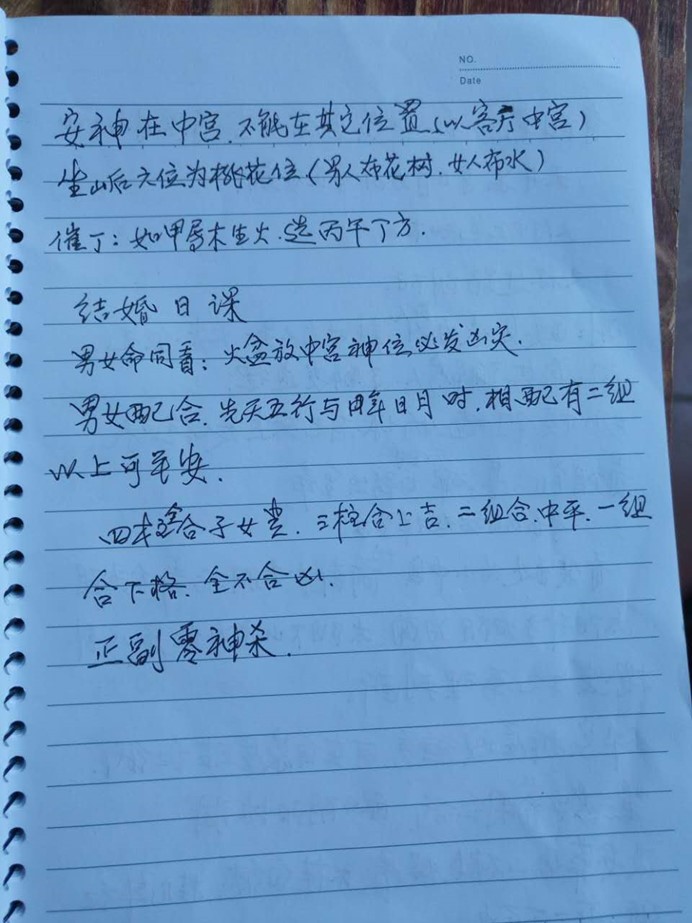 NO.
Date
安神在中宫.不能在其它位置(以客厅中宫)
坐山后六位为桃花位(男人布花树.女人布水)
催丁:如甲寻木生火.选丙午丁方.
结婚日课
男女命同看:火盆放中宫神位必发凶灾.
男女配合.先天五行与年日月时.相配有二组
以上可平安.
四柱合子女贵.三柱合上吉.二组合.中平.一组
合下格.全不合凶.
正副零神杀.